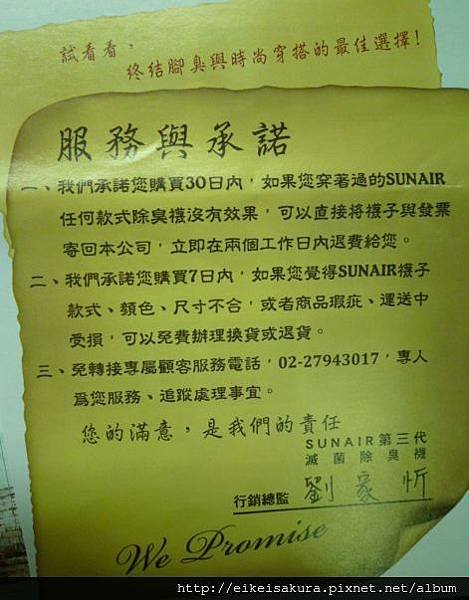 試看看，
終結腳臭與時尚穿搭的最佳選擇!
服務與承諾
一、我們承諾您購買30日內，如果您穿著過的SUNAIR
任何款式除臭襪沒有效果，可以直接將襪子與發票
寄回本公司，立即在兩個工作日內退費給您。
二、我們承諾您購買7日內，如果您覺得SUNAIR襪子
款式、顏色、尺寸不合，或者商品瑕疵、運送中
受損，可以免費辦理換貨或退貨。
三、免轉接專屬顧客服務電話，02-27943017，專人
為您服務、追蹤處理事宜。
您的滿意，是我們的責任
SUNAIR第三代
滅菌除臭襪
行銷總監 劉家忻
We Promise
http://eikeisakura.pixnet.net/album